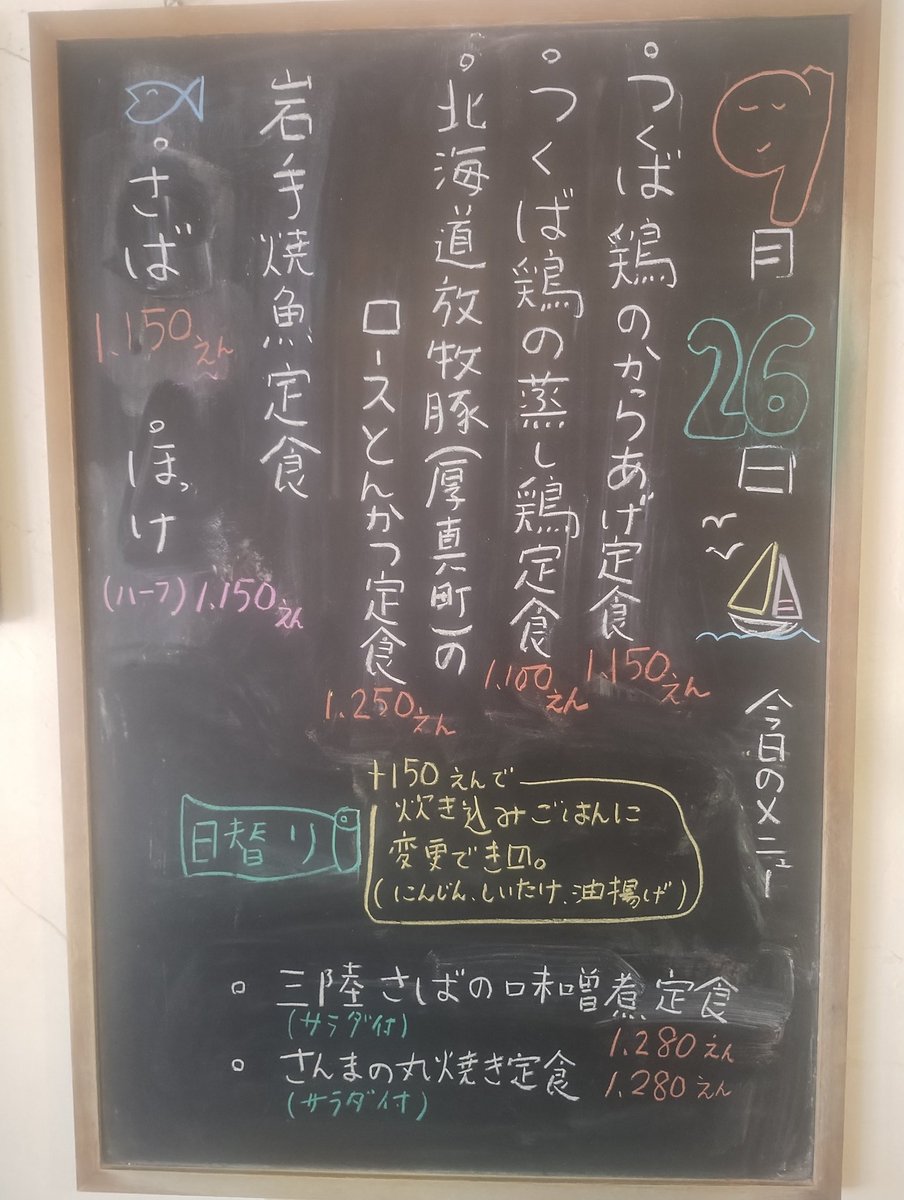 9月26日
今日のメニュー
。つくば鶏のからあげ定食
1.150えん
。つくば鶏の蒸し鶏定食
1.100えん
。北海道放牧豚(厚真町)の
ロースとんかつ定食
1.250えん
岩手焼魚定食
。さば
1.150えん
。ほっけ
(ハーフ)1.150えん
+150えんで
炊き込みごはんに
変更でき〼。
(にんじん、しいたけ、油揚げ)
日替り
。三陸さばの味噌煮定食
(サラダ付)
1.280えん
。さんまの丸焼き定食
1.280えん
(サラダ付)